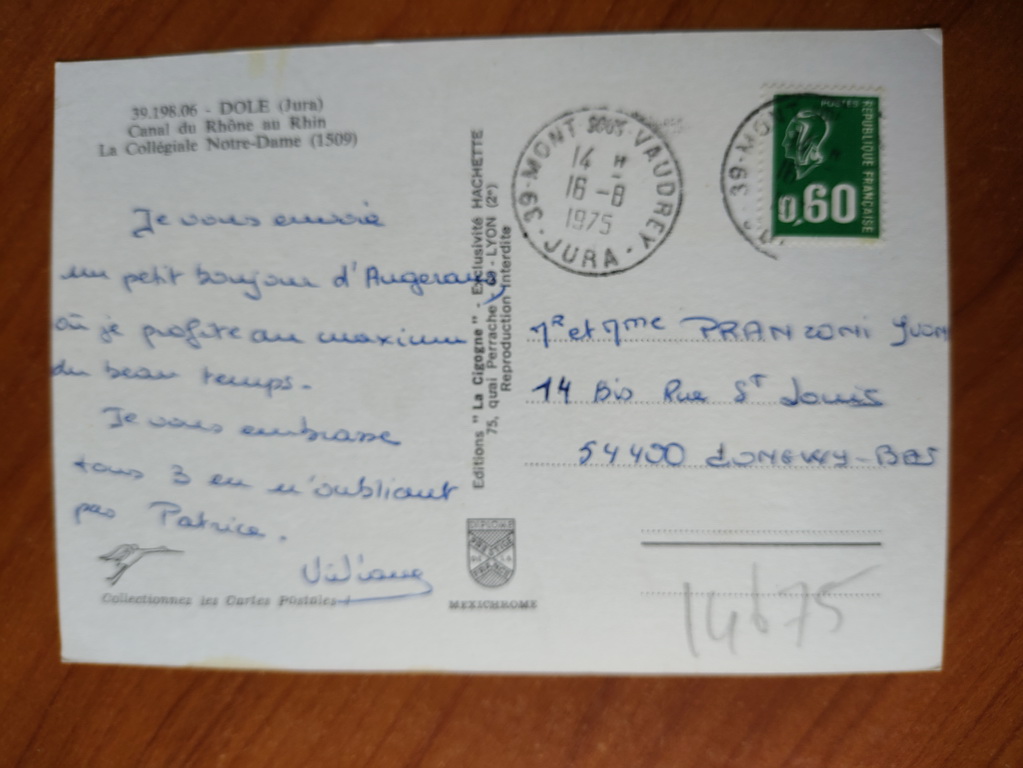 39.198.06 - DOLE (Jura)
Canal du Rhône au Rhin
La Collégiale Notre-Dame (1509)
Je vous envoie
un petit bonjour d'Augerans
où je profite au maximum
du beau temps.
Je vous embrasse
tous 3 en n'oubliant
pas Patrice.
Viviane
Collectionnez les Cartes Postales !
Editions "La Cigogne" - Exclusivité HACHETTE
75, quai Perrache - LYON (2e)
Reproduction Interdite
MEXICHROME
39-MONT-SOUS-VAUDREY
14 H
16-8
1975
JURA
39-MON
POSTES
REPUBLIQUE FRANÇAISE
0,60
Mr et Mme FRANZONI Yvon
14 Bis Rue St Louis
54400 LONGWY-BAS
14675